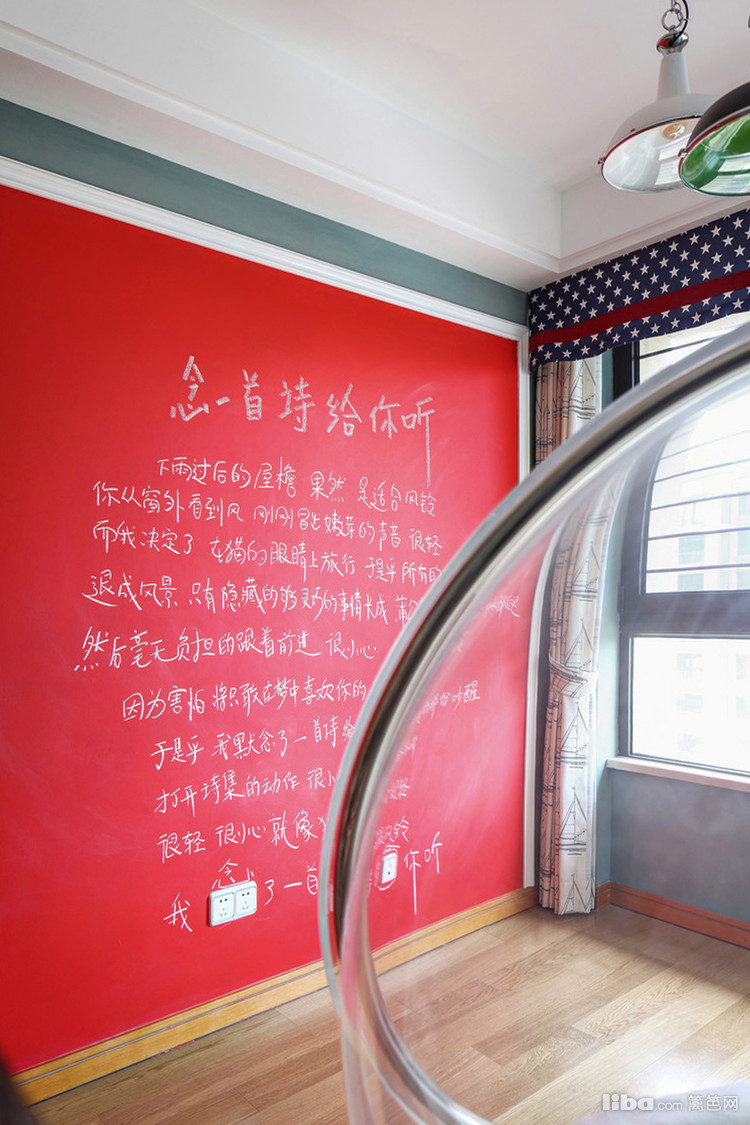 念一首诗给你听
下雨过后的屋檐 果然 是适合风铃
你从窗外看到风 刚刚冒出嫩芽的声音 很轻
而我决定了 在猫的眼睛上旅行 于是乎所有的
退成风景 只有隐藏的够灵巧的事情长成 蒲公
然后毫无负担的跟着前进 很小心
因为害怕 将只敢在梦中喜欢你的 吵醒
于是乎 我默念了一首诗给
打开诗集的动作 很小
很轻 很小心 就像 风铃
我 念 了一首 你听
liba.com 篱笆网